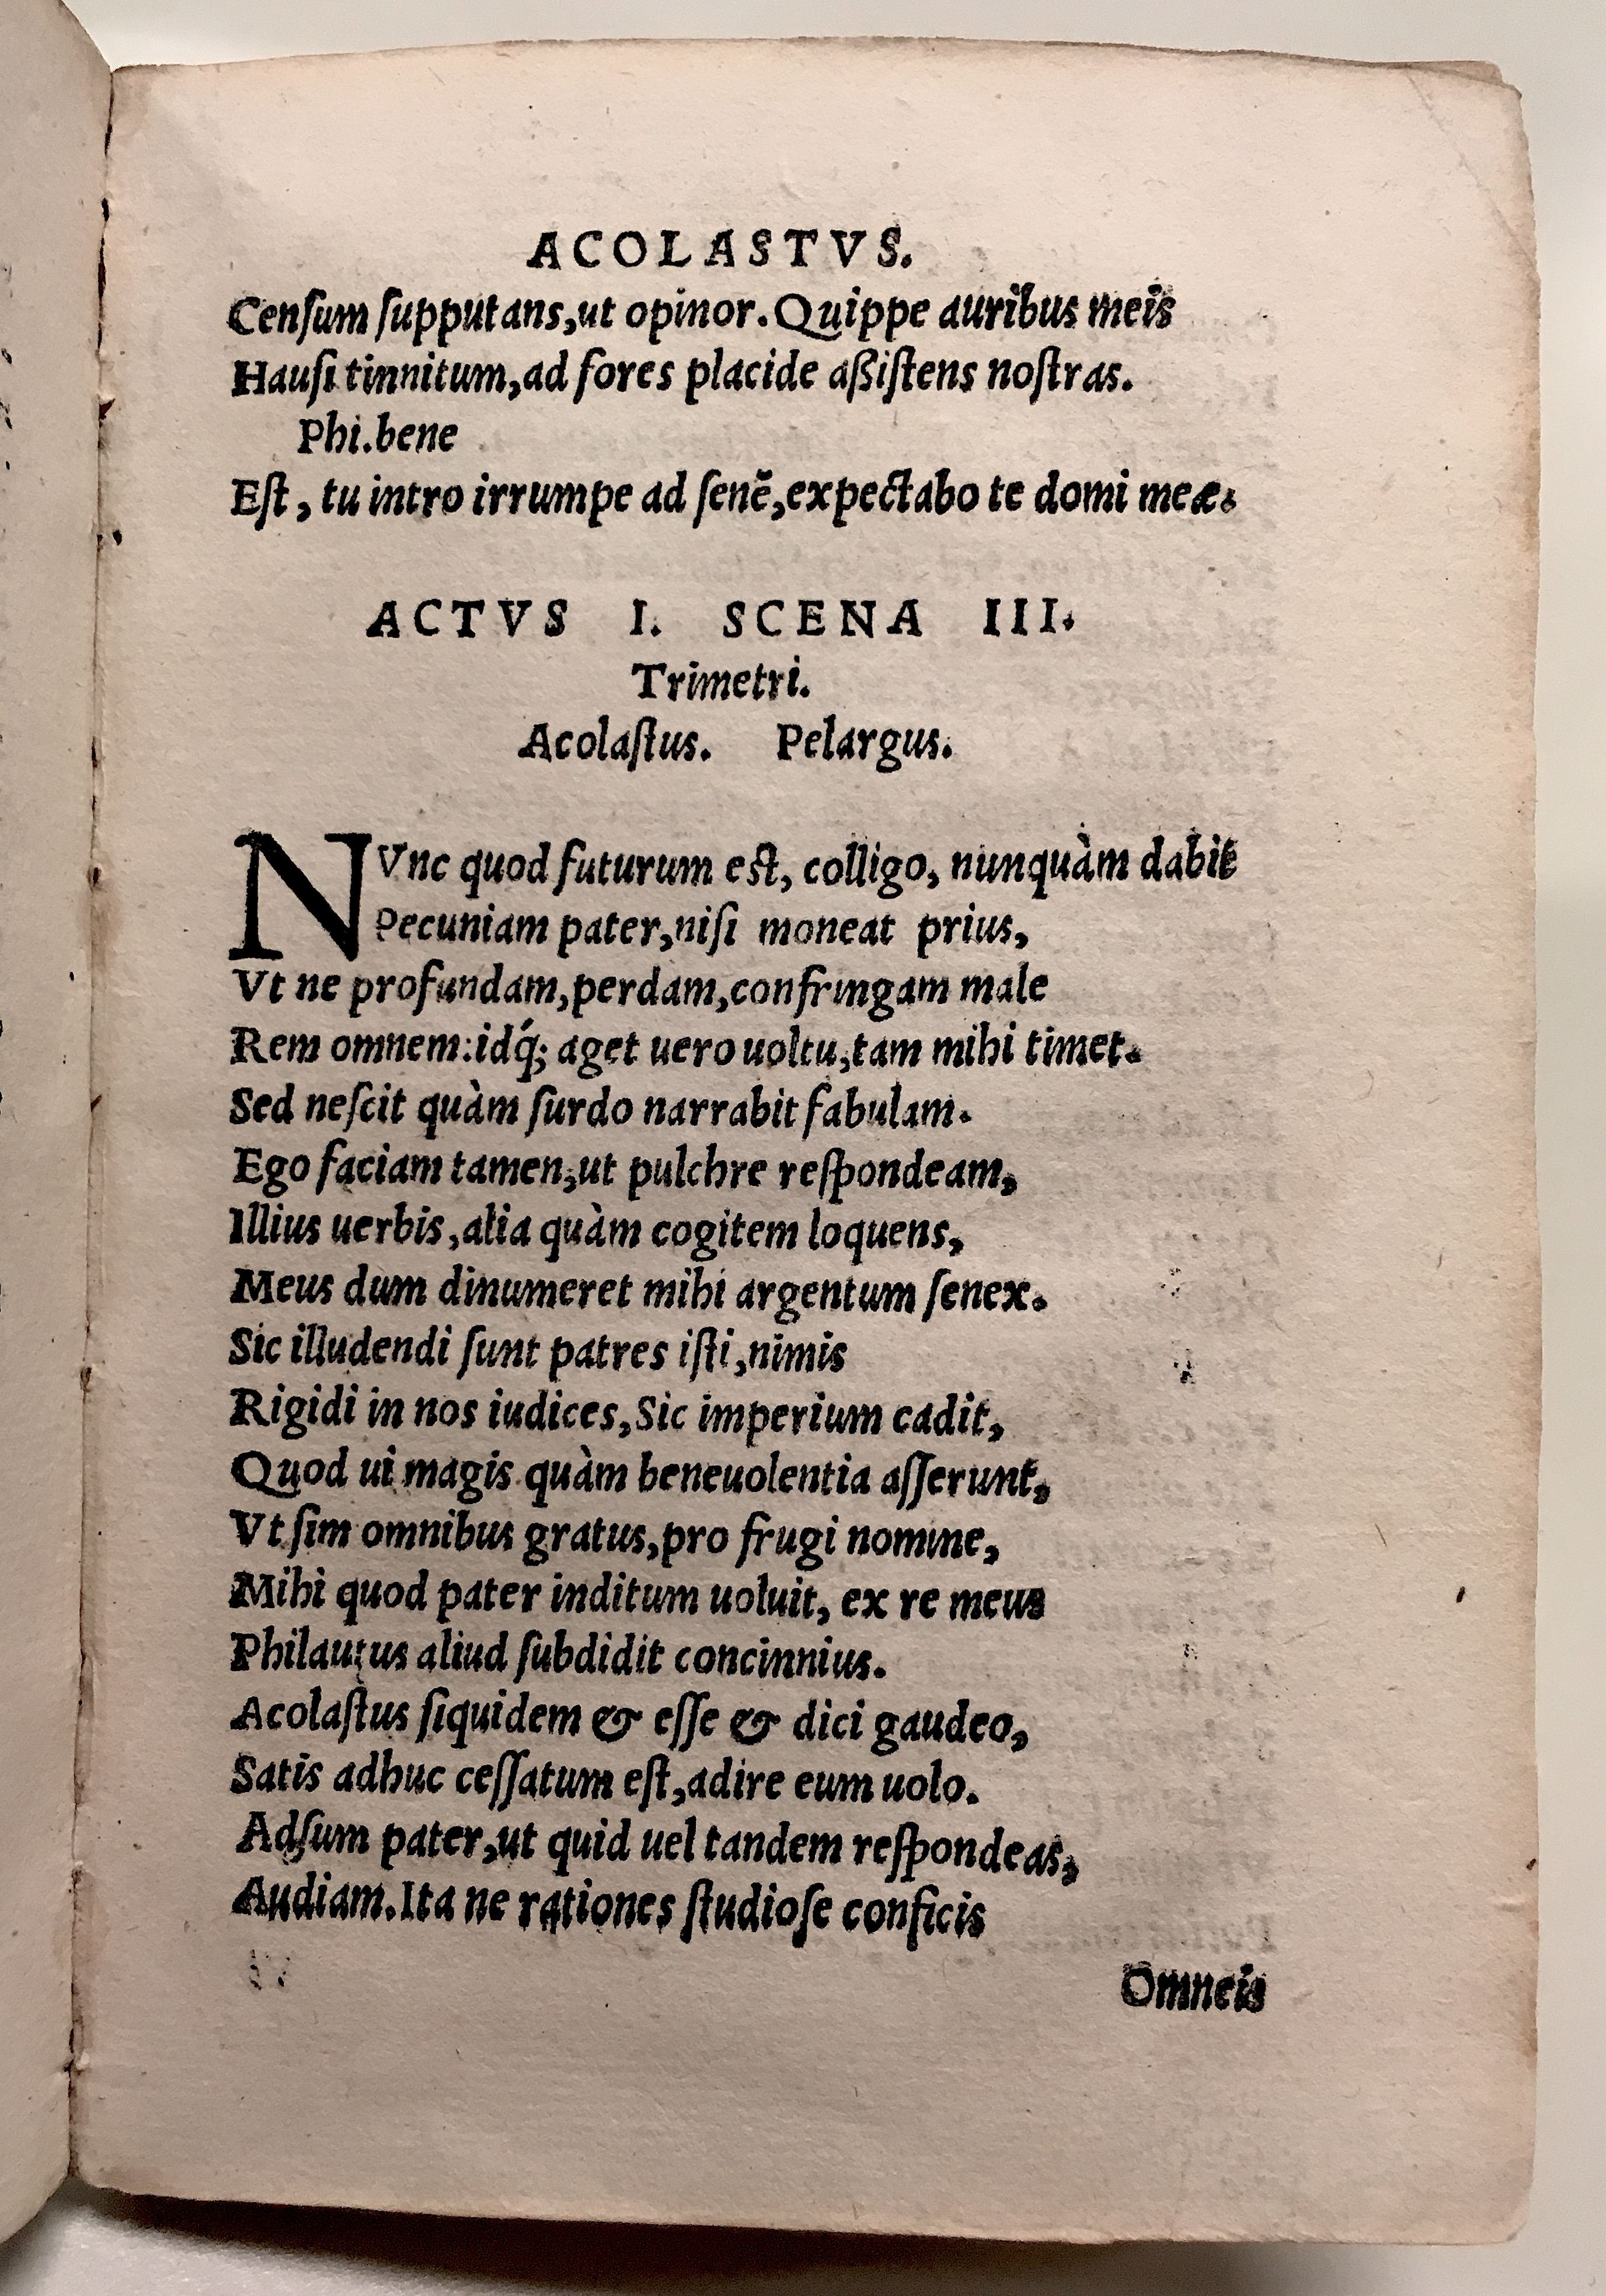 ACOLASTVS.
Cenſum ſupputans,ut opinor. Quippe auribus meis
Hauſi tinnitum,ad fores placide aßiſtens noſtras.
Phi.bene
Eſt, tu intro irrumpe ad ſenẽ,expectabo te domi meæ.
ACTVS I. SCENA III.
Trimetri.
Acolaſtus. Pelargus.
NVnc quod futurum eſt, colligo, nunquàm dabit
Pecuniam pater,niſi moneat prius,
Vt ne profundam,perdam,confringam male
Rem omnem:idq́; aget uero uoltu,tam mihi timet.
Sed neſcit quàm ſurdo narrabit fabulam.
Ego faciam tamen,ut pulchre reſpondeam,
Illius uerbis,alia quàm cogitem loquens,
Meus dum dinumeret mihi argentum ſenex.
Sic illudendi ſunt patres iſti,nimis
Rigidi in nos iudices,Sic imperium cadit,
Quod ui magis quàm beneuolentia aſſerunt,
Vt ſim omnibus gratus,pro frugi nomine,
Mihi quod pater inditum uoluit, ex re meus
Philautus aliud ſubdidit concinnius.
Acolaſtus ſiquidem & eſſe & dici gaudeo,
Satis adhuc ceſſatum eſt,adire eum uolo.
Adſum pater,ut quid uel tandem reſpondeas,
Audiam.Ita ne rationes ſtudioſe conficis
Omneis